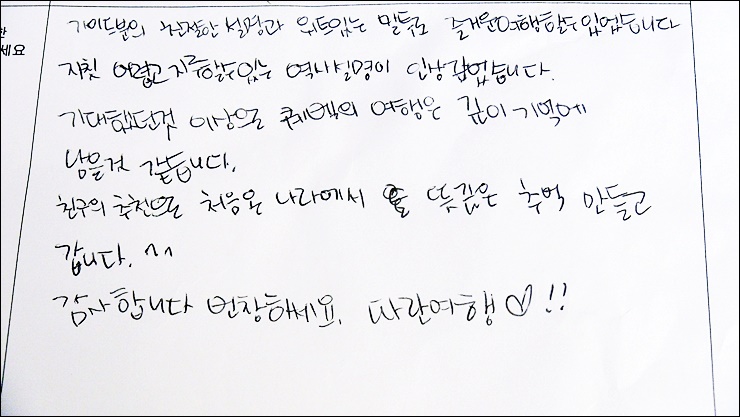 한
세요
가이드분의 친절한 설명과 위트있는 말투로 즐거운여행할수있었습니다
자칫 어렵고 지루할수있는 역사설명이 인상깊었습니다.
기대했던것 이상으로 퀘벡의 여행은 깊이 기억에
남을것 같습니다.
친구의 추천으로 처음온 나라에서 뜻깊은 추억 만들고
갑니다. ^^
감사합니다 번창하세요. 파란여행♡!!